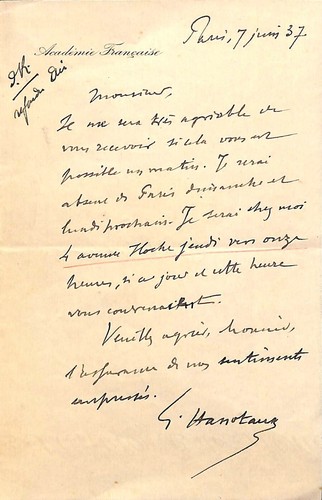 Paris, 7 juin 37
Académie Française
Monsieur,
Il me sera très agréable de
vous recevoir si cela vous est
possible un matin. Je serai
absent de Paris dimanche et
lundi prochain. Je serai chez moi
4 avenue Hoche jeudi vers onze
heures, si ce jour et cette heure
vous convenaient.
Veuillez agréer, Monsieur,
l'assurance de mes sentiments
empressés.
G. Hanotaux